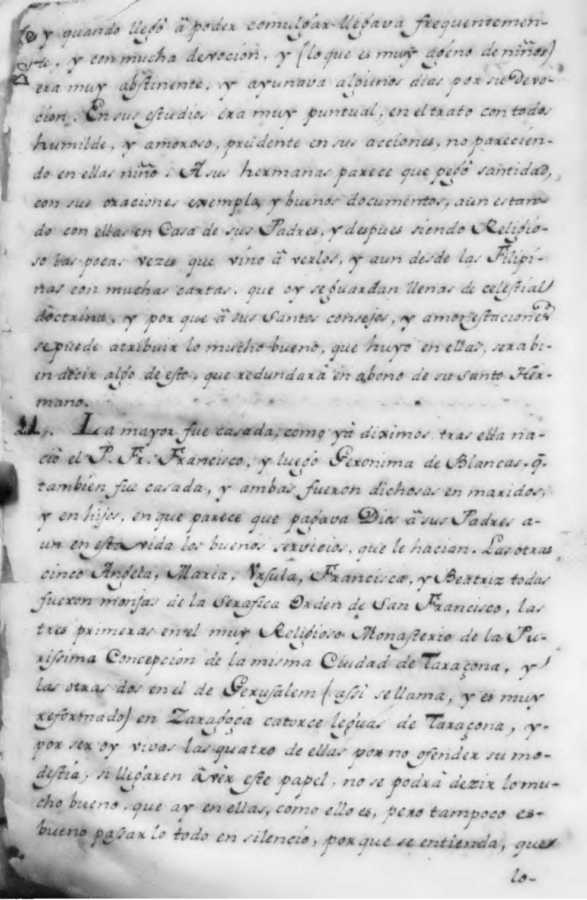 y quando llegò â poder comulgar llegava frequentemen-
te, y con mucha devocion, y (lo que es muy ageno de niños)
era muy abstinente, y ayunava algunos dias por su Devo-
cion. En sus estudios era muy puntual, en el trato con todos
humilde, y amoroso, prudente en sus acciones, no parecien-
do en ellas niño. A sus hermanas parece que pegò santidad,
con sus oraciones exemplo, y buenos documentos, aun estan-
do con ellas en Casa de sus Padres, y despues siendo Religio-
so las pocas vezes que vino â verlos, y aun desde las Filipi-
nas con muchas cartas, que oy se guardan llenas de celestial
doctrina, y por que â sus Santos consejos, y amonestaciones
se puede atribuir lo mucho bueno, que huvo en ellas, serà bi-
en decir algo de esto, que redundarà en abono de su Santo Her-
mano.
21. La mayor fue casada, como yà diximos, tras ella na-
ciò el P. Fr. Francisco, y luego Geronima de Blancas, q̃
tambien fue casada, y ambas fueron dichosas en maridos,
y en hijos, en que parece que pagava Dios â sus Padres a-
un en esta vida los buenos servicios, que le hacian. Las otras
cinco Angela, Maria, Vrsula, Francisca, y Beatriz todas
fueron monjas de la Serafica Orden de San Francisco, las
tres primeras en el muy Religioso Monasterio de la Pu-
rissima Concepcion de la misma Ciudad de Taraçona, y
las otras dos en el de Gerusalem (assi se llama, y es muy
reformado) en Zaragoça catorce leguas de Taraçona, y
por ser oy vivas las quatro de ellas por no ofender su mo-
destia, si llegaren â vèr este papel, no se podrà dezir lo mu-
cho bueno, que ay en ellas, como ello es, pero tampoco es
bueno pasar lo todo en silencio, por que se entienda, que
lo-